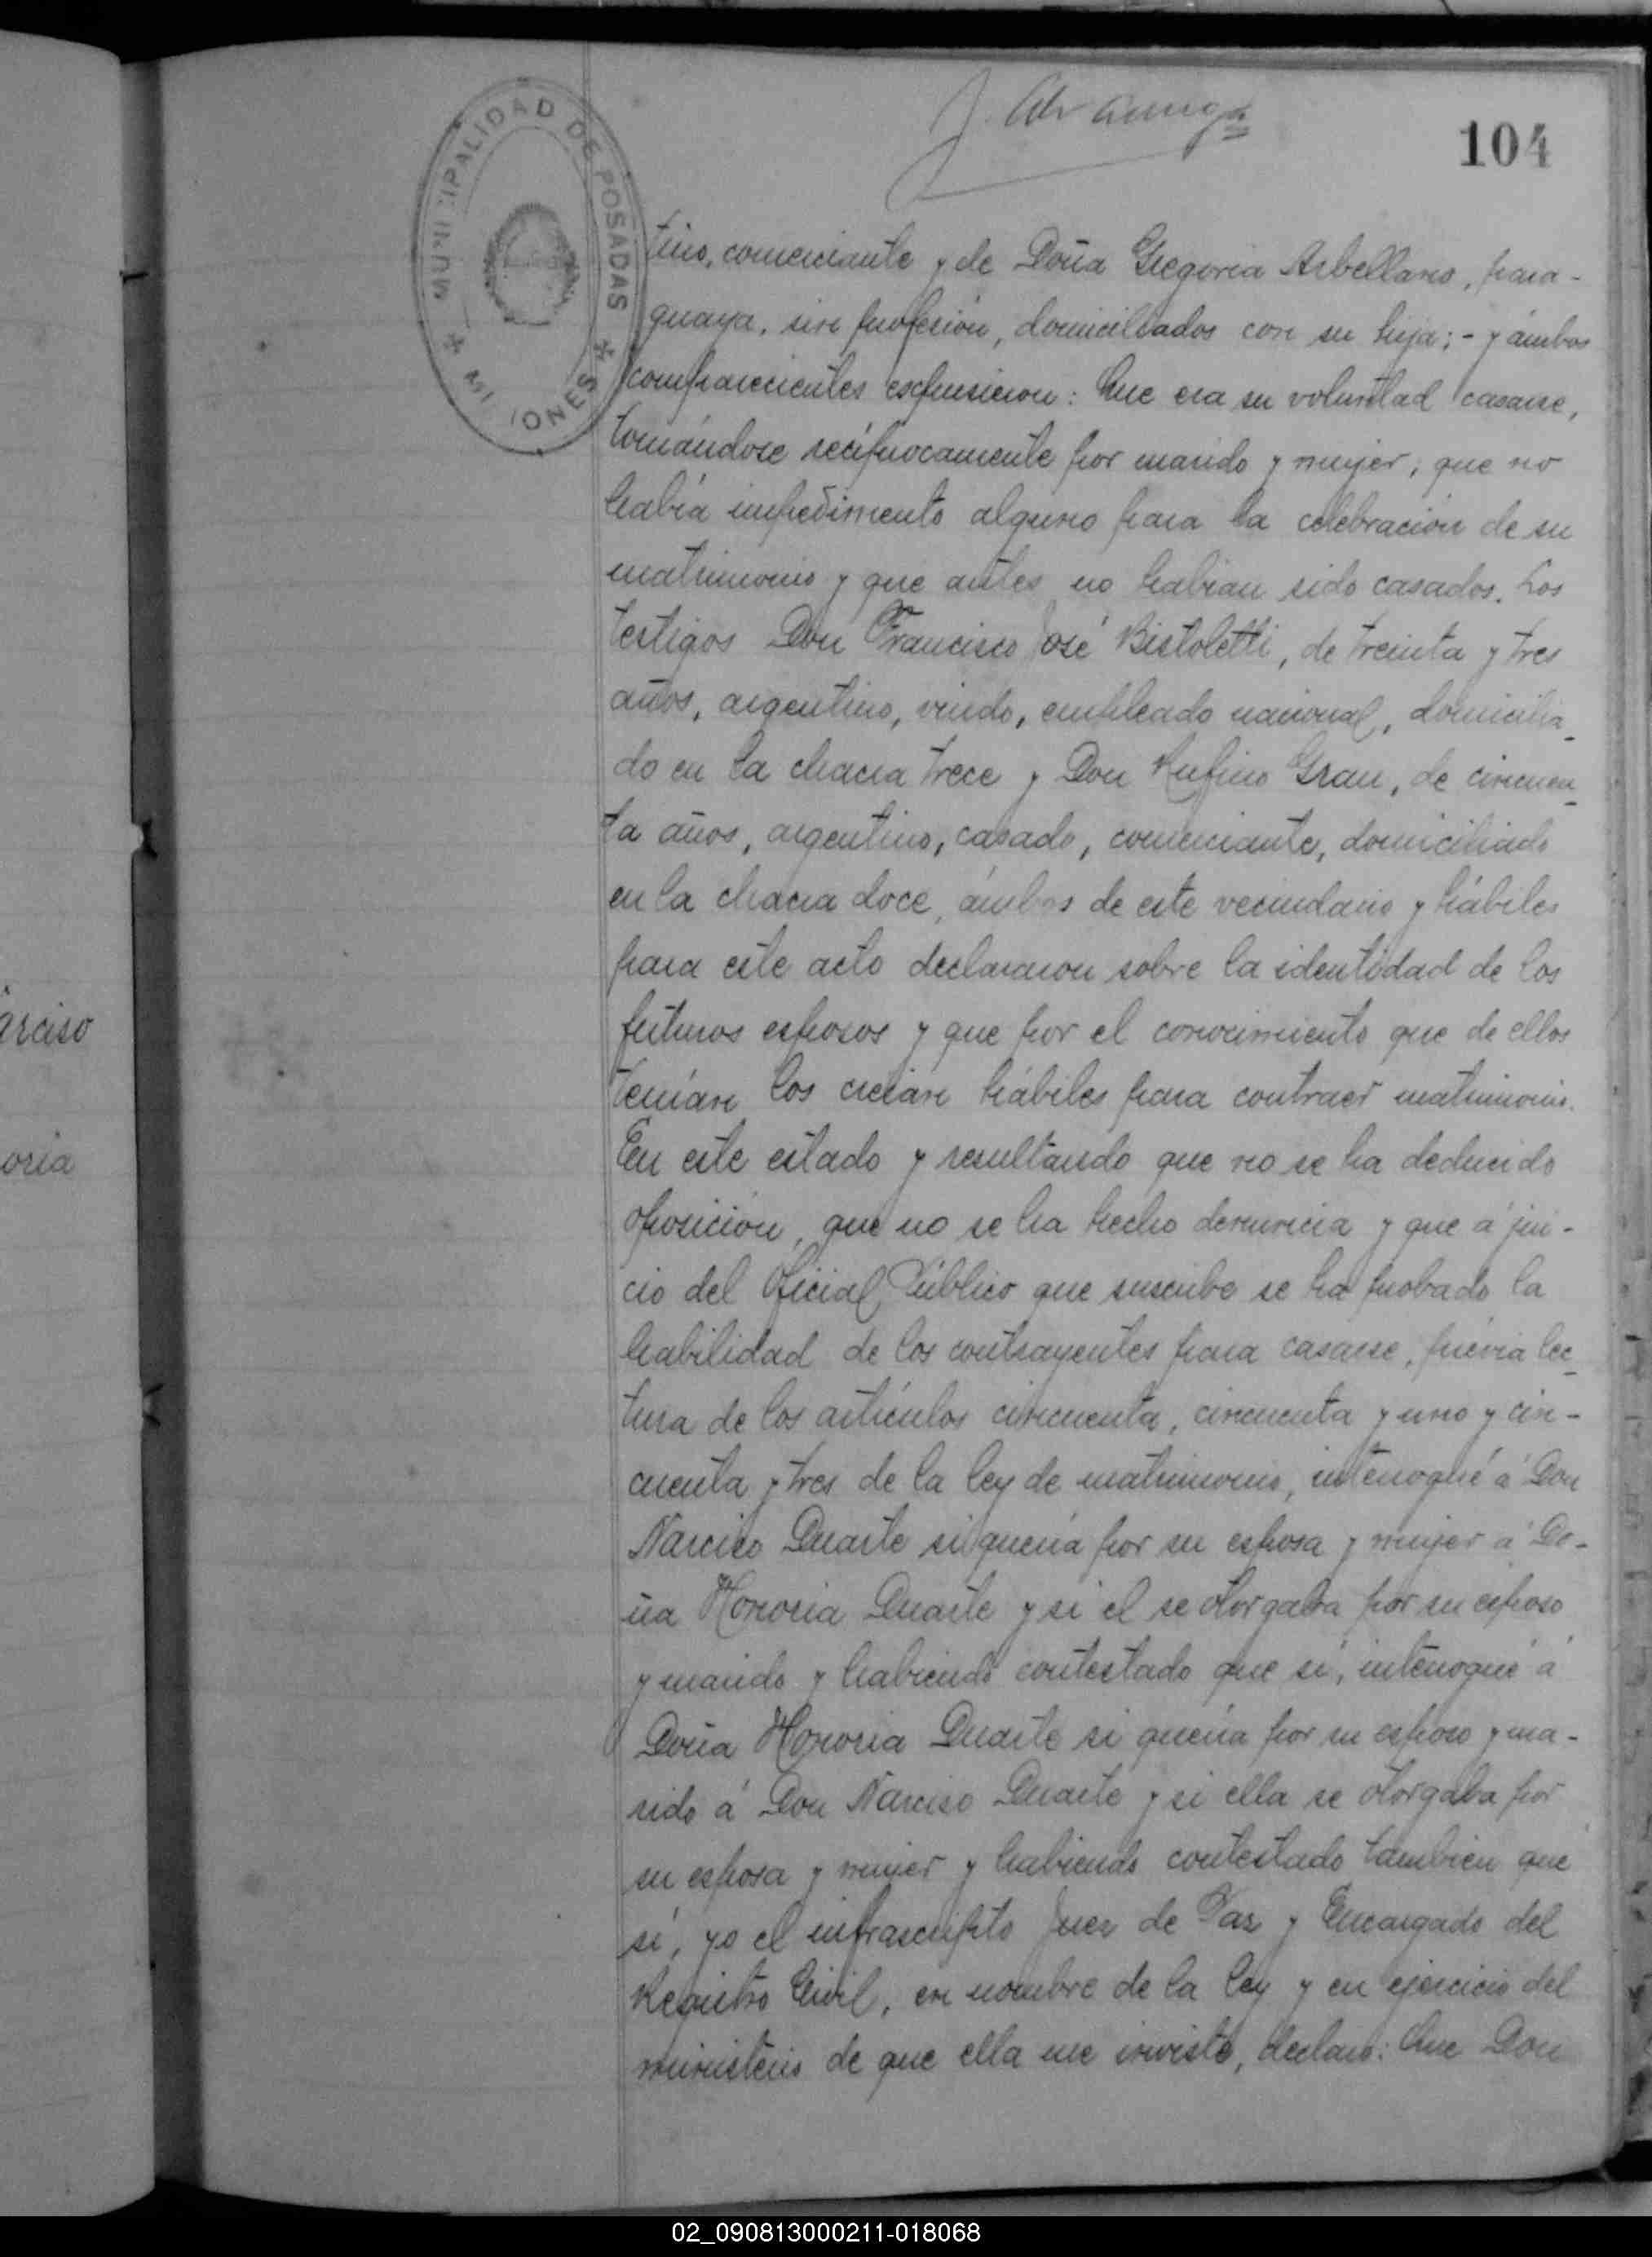 104
MUNICIPALIDAD DE POSADAS
MISIONES
tino, comerciante y de Doña Gregoria Arbellano, para-
guaya, sin profesión, domiciliados con su hija; - y ámbos
comparecientes espusieron: Que era su voluntad casarse,
tomándose recíprocamente por marido y mujer, que no
había impedimento alguno para la celebración de su
matrimonio y que antes no habían sido casados. Los
testigos Don Francisco José Bistoletti, de treinta y tres
años, argentino, viudo, empleado nacional, domicilia-
do en la chacra trece y Don Rufino Grau, de cincuen-
ta años, argentino, casado, comerciante, domiciliado
en la chacra doce, ámbos de este vecindario y hábiles
para este acto declararon sobre la identidad de los
futuros esposos y que por el conocimiento que de ellos
tenían los creían hábiles para contraer matrimonio.
En este estado y resultando que no se ha deducido
oposición, que no se ha hecho denuncia y que á jui-
cio del Oficial Público que suscribe se ha probado la
habilidad de los contrayentes para casarse, prévia lec-
tura de los artículos cincuenta, cincuenta y uno y cin-
cuenta y tres de la ley de matrimonio, interrogué á Don
Narciso Duarte si quería por su esposa y mujer á Do-
ña Honoria Duarte y si el se otorgaba por su esposo
y marido y habiendo contestado que sí, interrogué á
Doña Honoria Duarte si quería por su esposo y ma-
rido á Don Narciso Duarte y si ella se otorgaba por
su esposa y mujer y habiendo contestado tambien que
sí, yo el infrascripto Juez de Paz y Encargado del
Registro Civil, en nombre de la ley y en ejercicio del
ministerio de que ella me inviste, declaro: Que Don
arciso
oria
02_090813000211-018068